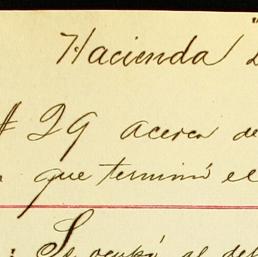 Hacienda
# 29 acerca de
que terminó el
Se ocupó al del